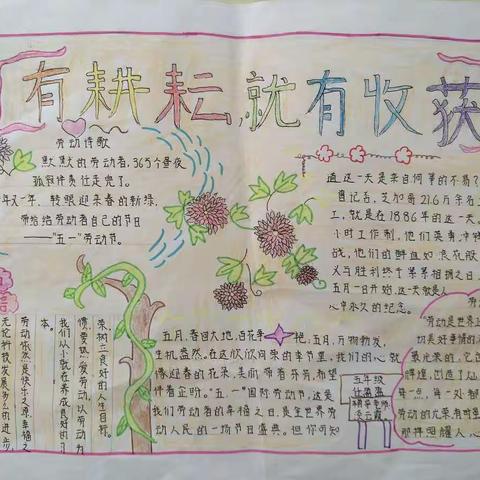 有耕耘,就有收获
劳动诗歌
默默的劳动者,365个昼夜
孤寂伴责任走完了。
年又一年,转眼迎来春的新绿,
带给给劳动者自己的节日
——"五一"劳动节。
道这一天是来自何事的不易?
芝加哥21.6万余名
工,就是在1886年的这一天。
小时工作制,他们英勇
战,他们的鲜血如浪花般
义与胜利终于
五月一日开始,这一天就是人
心中永久的纪念。
荣,树立良好的人生目标。
惯,要热爱劳动,以劳动为
我们从小就在养成良好的习
本。
劳动依然是快乐之源,幸福之
无论科技发展多么的进步,
五月,春回大地,百花争艳,五月,万物勃发,
生机盎然。在这欣欣向荣的季节里,我们的心就
像迎春的花朵,美丽,带着芬芳,希望
伴着企盼。"五一"国际劳动节,这是
我们劳动者的幸福之日,是全世界劳
动人民的一场节日盛典。但你可知
五年级
劳动是世界上
功美好事情的
最光荣的,它创
辉煌,
每一点,每一处都
劳动的光荣,有时是
那样照耀人心